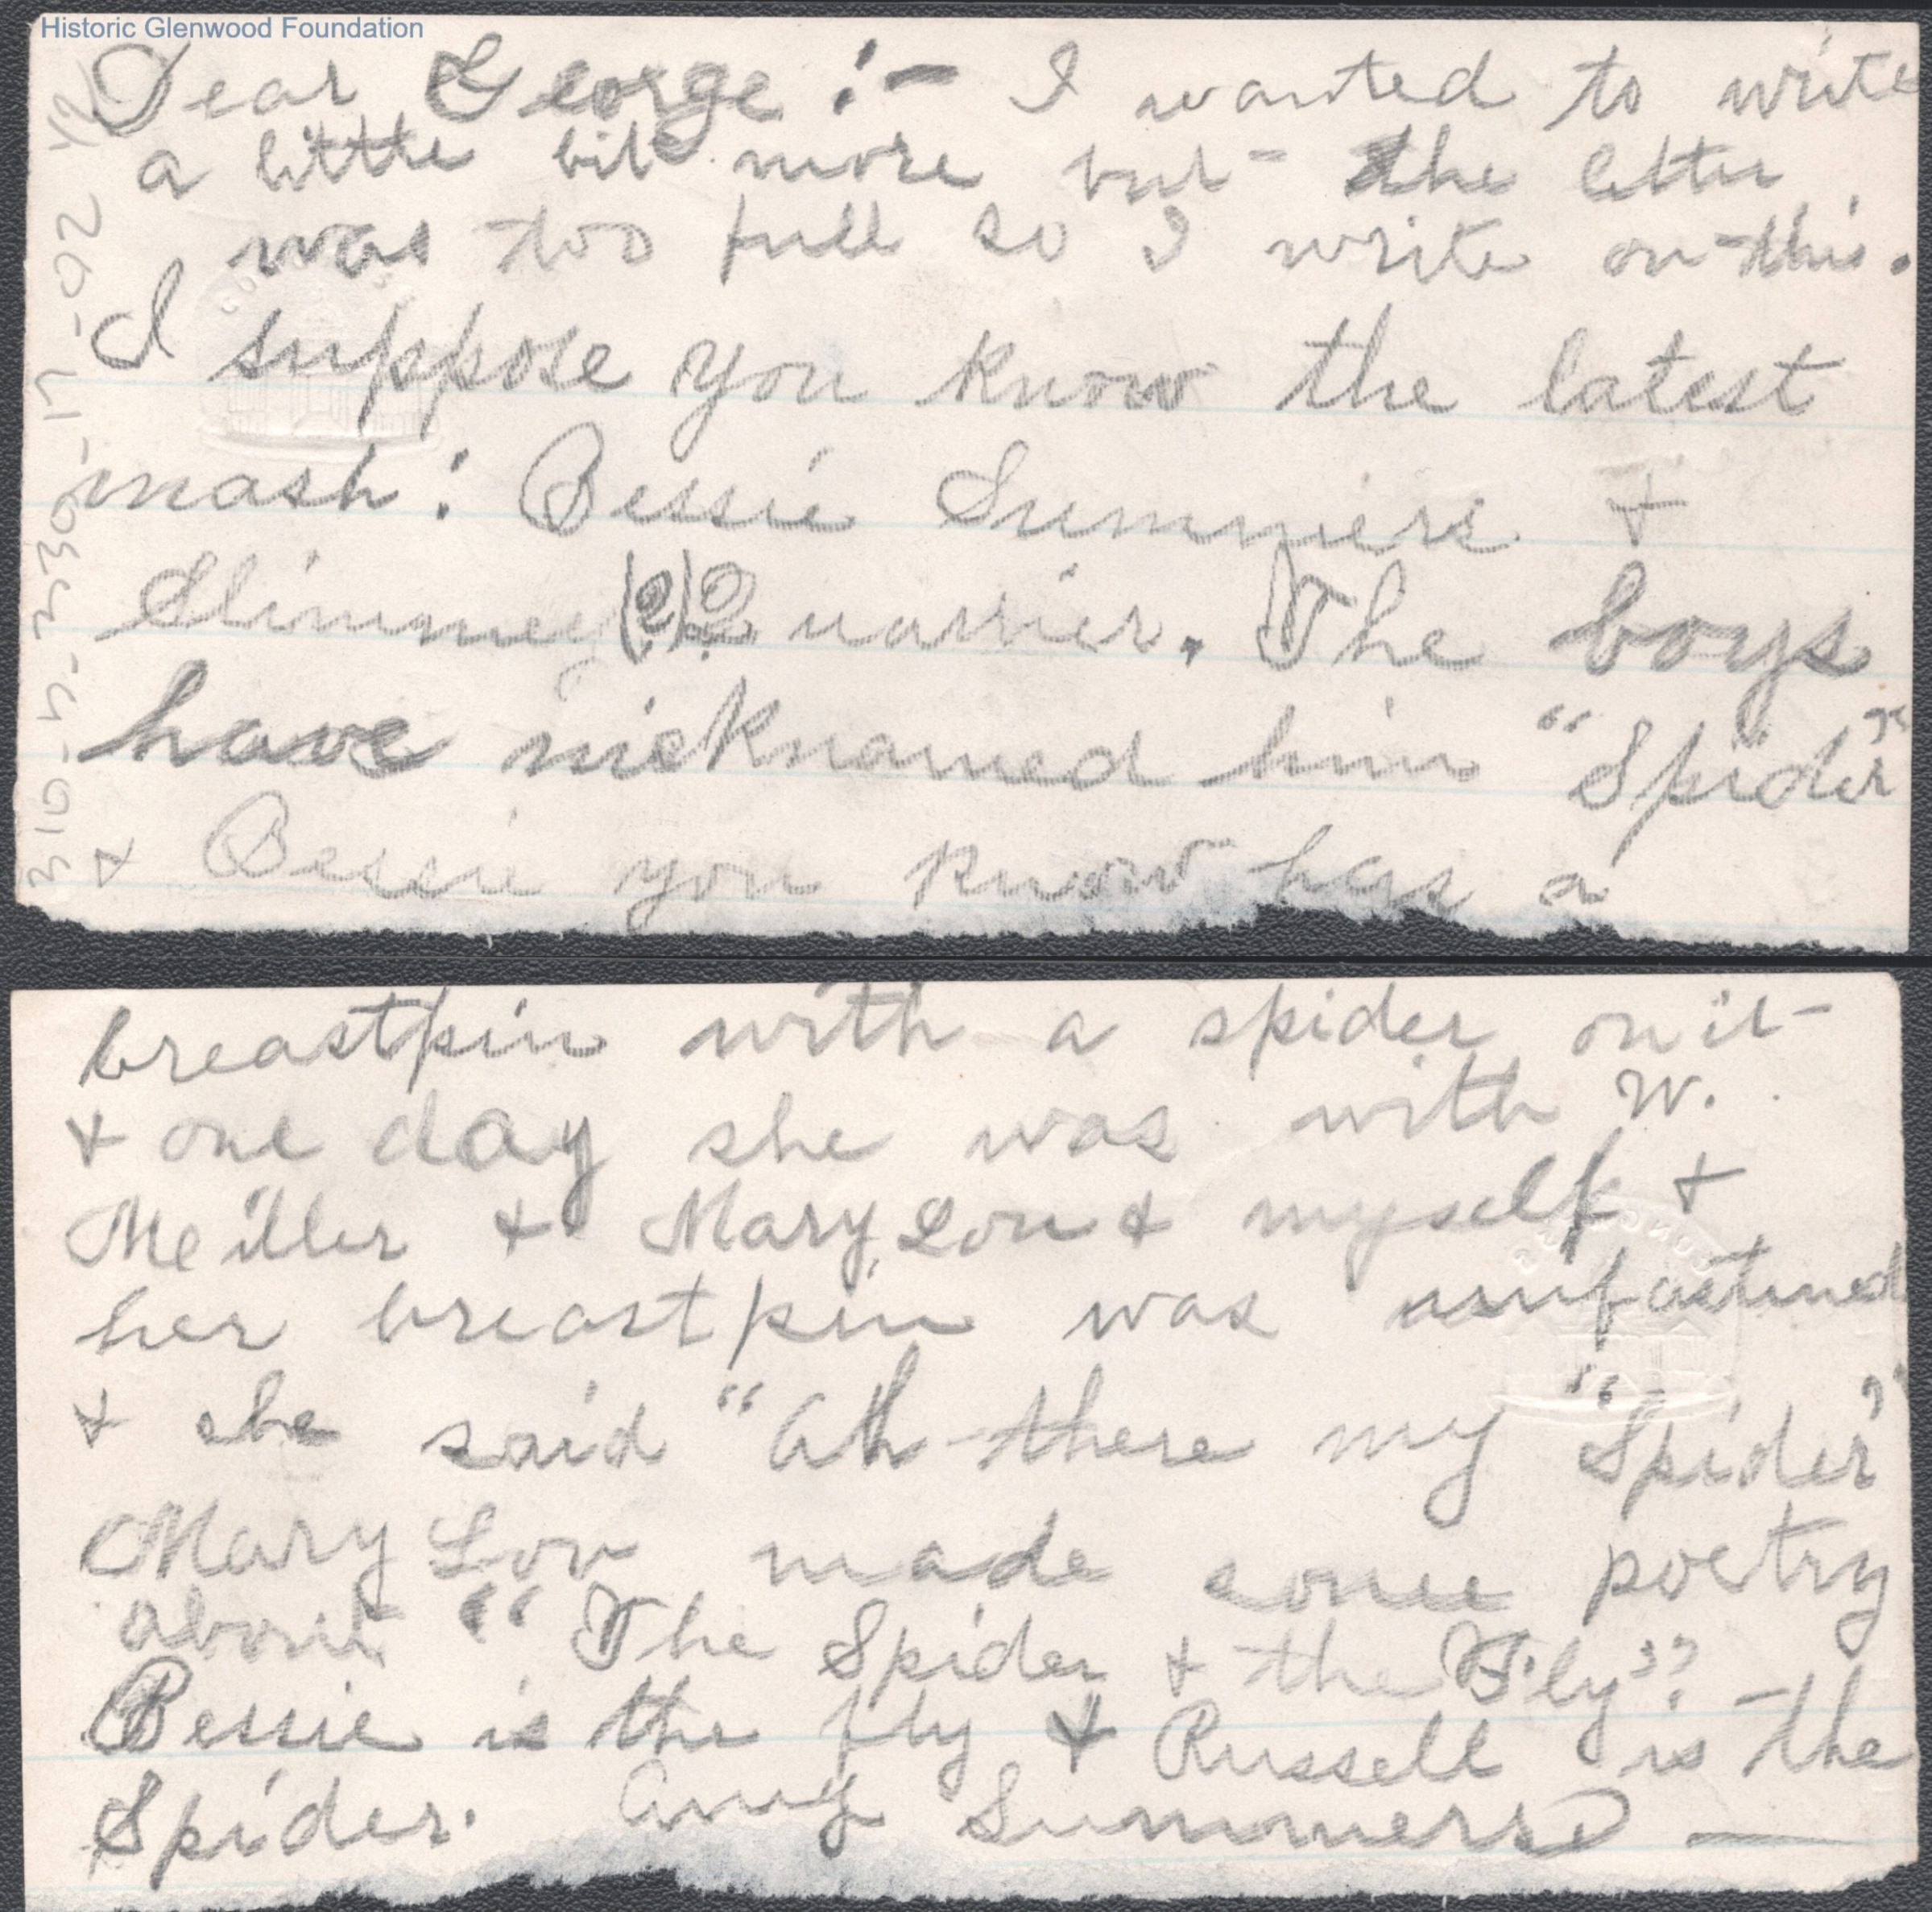 Historic Glenwood Foundation
Dear George :- I wanted to write
a little bit more but the letter
was too full so I write on this.
I suppose you know the latest
mash: Bessie Summers &
Slimmey (?)? uarrier. The boys
have nicknamed him "Spider"
& Bessie you know has a
breastpin with a spider on it
& one day she was with W.
Meiller & Mary Lou & myself &
her breastpin was unfastened
& she said "Ah there my "Spider"
Mary Lou made some poetry
about "The Spider & the Fly"
Bessie is the fly & Russell is the
Spider. Amy Summers